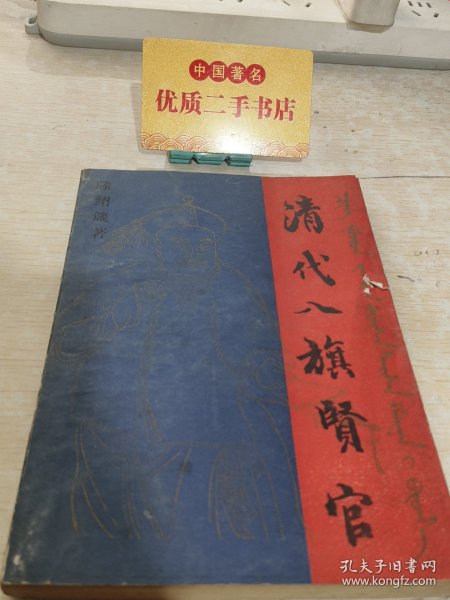 中国著名
优质二手书店
清代八旗賢官
滕绍箴著
孔夫子旧书网
www.kongfz.com